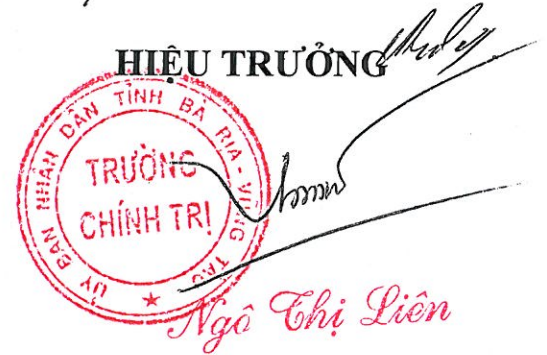 HIỆU TRƯỞNG
ỦY BAN NHÂN DÂN TỈNH BÀ RỊA - VŨNG TÀU
TRƯỜNG
CHÍNH TRỊ
Ngô Thị Liên